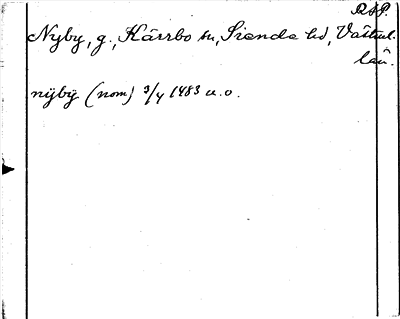 RAP.
Nyby, g., Kärrbo sn, Siende hd, Västml.
län.
nÿbÿ (nom) 3/4 1483 u.o.